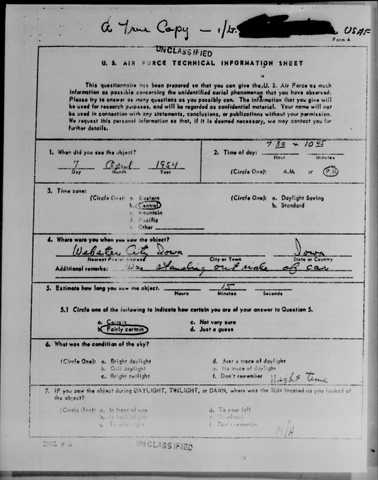 A True Copy - 1/Lt. USAF
Form A
UNCLASSIFIED
U. S. AIR FORCE TECHNICAL INFORMATION SHEET
This questionnaire has been prepared so that you can give the U. S. Air Force as much
information as possible concerning the unidentified aerial phenomenon that you have observed.
Please try to answer as many questions as you possibly can. The information that you give will
be used for research purposes, and will be regarded as confidential material. Your name will not
be used in connection with any statements, conclusions, or publications without your permission.
We request this personal information so that, if it is deemed necessary, we may contact you for
further details.
1. When did you see the object?
7 April 1954
Day Month Year
2. Time of day: 7 30 & 10 45
Hour Minutes
(Circle One): A.M. or P.M.
3. Time zone:
(Circle One): a. Eastern
b. Central
c. Mountain
d. Pacific
e. Other
(Circle One): a. Daylight Saving
b. Standard
4. Where were you when you saw the object?
Webster City Iowa Iowa
Nearest Postal Address City or Town State or Country
Additional remarks: Was standing out side of car
5. Estimate how long you saw the object. 15
Hours Minutes Seconds
5.1 Circle one of the following to indicate how certain you are of your answer to Question 5.
a. Certain
b. Fairly certain
c. Not very sure
d. Just a guess
6. What was the condition of the sky?
(Circle One): a. Bright daylight
b. Dull daylight
c. Bright twilight
d. Just a trace of daylight
e. No trace of daylight
f. Don't remember
Night Time
7. IF you saw the object during DAYLIGHT, TWILIGHT, or DAWN, where was the SUN located as you looked at
the object?
(Circle One): a. In front of you
b. In back of you
c. To your right
d. To your left
e. Overhead
f. Don't remember
N/A
UNCLASSIFIED